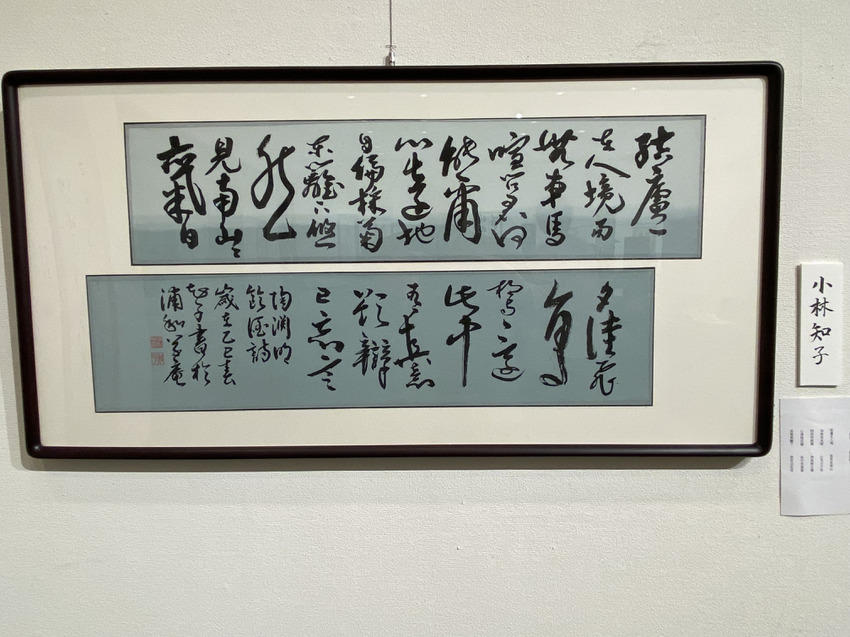 結廬
在人境而
無車馬
喧問君何
能爾
心遠地
自偏採菊
東籬下悠
然
見南山〻
氣日
夕佳飛
鳥
相與還
此中
有真意
欲辯
已忘言
陶淵明
飲酒詩
歳在乙巳春
知子書於
浦和草庵
小林知子